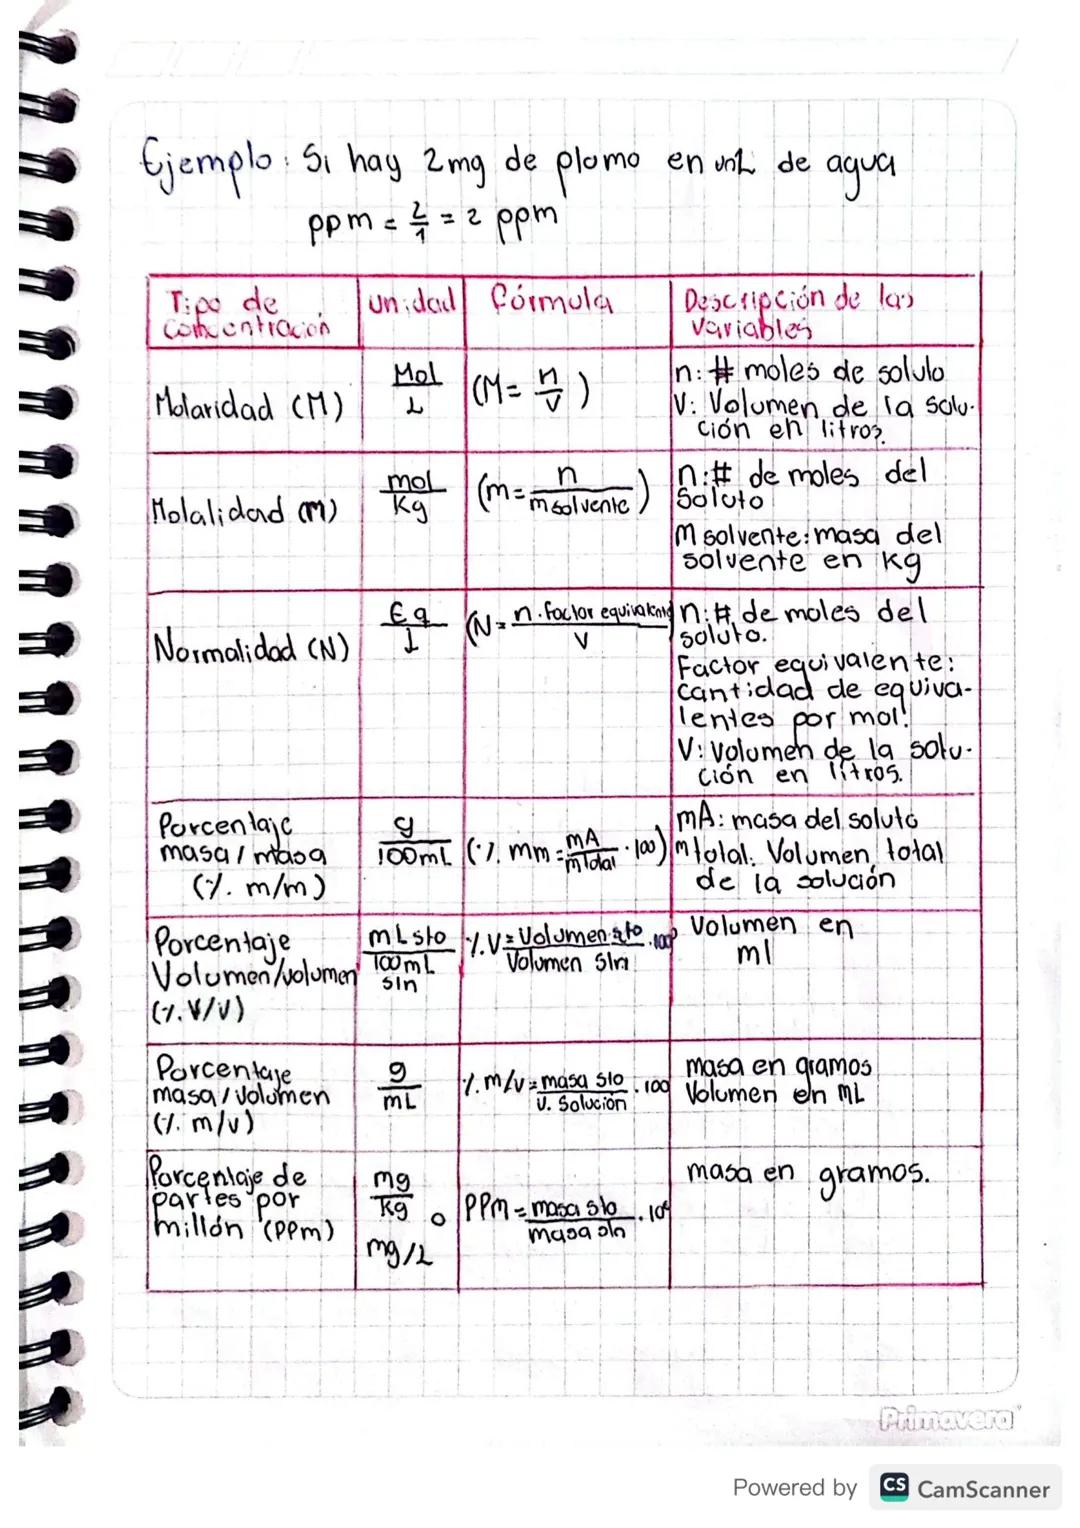 Ejemplo: Si hay 2mg de plomo en un L de agua
ppm = 2/1 = 2 ppm
Tipo de concentración
Unidad
Fórmula
Descripción de las variables
Molaridad (M)
Mol/L
(M = n/V)
n: # moles de soluto
V: Volumen de la solu-
ción en litros.
Molalidad (m)
mol/Kg
(m = n/m solvente)
n: # de moles del
Soluto
M solvente: masa del
solvente en Kg
Normalidad (N)
Eq/L
(N = n. factor equivalente/V
n: # de moles del
soluto.
Factor equivalente:
cantidad de equiva-
lentes por mol.
V: Volumen de la solu-
ción en litros.
Porcentaje
masa / masa
(% m/m)
g/100mL
(% mm = mA/mTotal . 100)
mA: masa del soluto
mtotal. Volumen total
de la solución
Porcentaje
Volumen/volumen
(% V/V)
mL sto/100mL sln
%V = Volumen sto/Volumen sln . 100
Volumen en
ml
Porcentaje
masa / Volumen
(% m/v)
g/mL
% m/v = masa sto/V. Solución . 100
masa en gramos
Volumen en mL
Porcentaje de
partes por
millón (PPm)
mg/Kg o
mg/L
PPM = masa sto/masa sln . 10⁶
masa en gramos.
Primavera
Powered by CS CamScanner